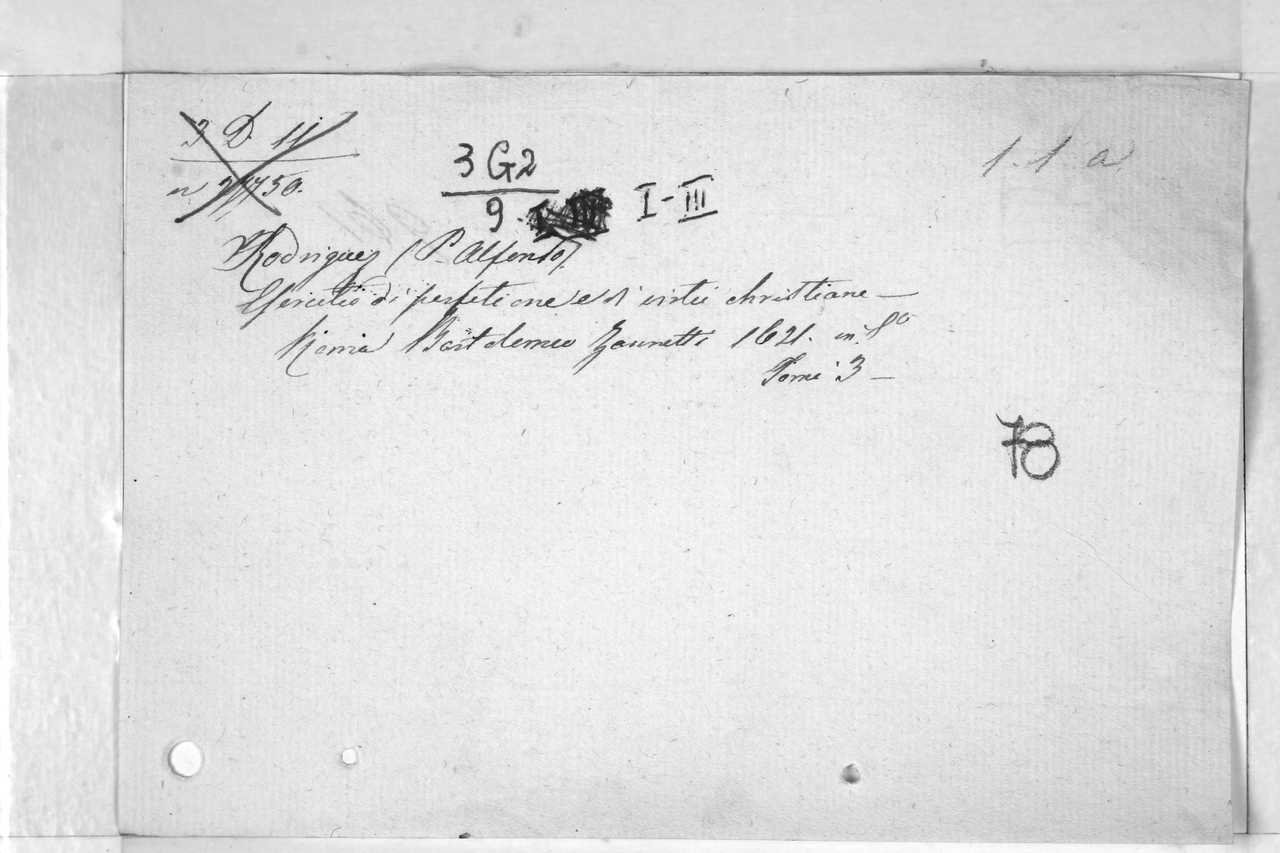 3 D. 11
3 G2
9. I-III
1. 1. a.
Rodriguez (P. Alfonso)
Esercitio di perfetione e di virtù christiane —
Roma Bartolomeo Zannetti 1621. in 8º
Tomi 3 —
78